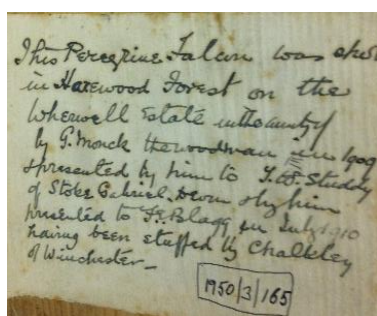 This Peregrine Falcon was shot
in Harewood Forest on the
Wherwell Estate in the county of
by G. Monck the woodman in 1909
& presented by him to T. W. Studdy
of Stoke Gabriel, Devon & by him
presented to F. Blagg in July 1910
having been stuffed by Chalkley
of Winchester_
1950/3/165